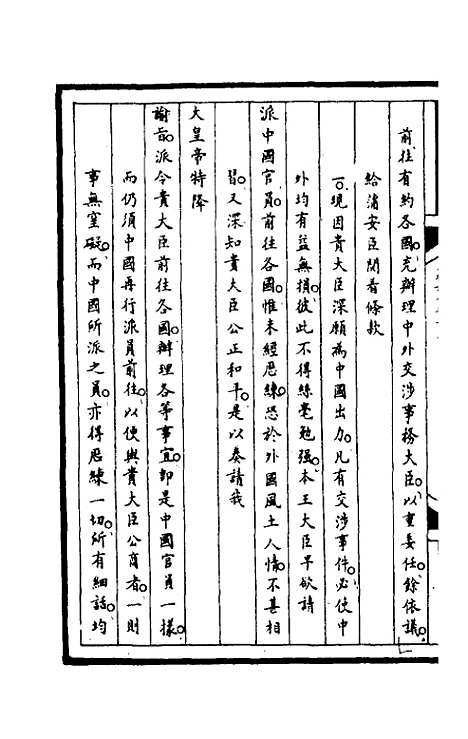 前往有約各國。充辦理中外交涉事務大臣。以重委任。餘依議。
給蒲安臣閱看條款
一。現因貴大臣深願為中國出力。凡有交涉事件。必使中
外均有益無損。彼此不得絲毫勉強。本王大臣早欲請
派中國官員。前往各國。惟未經歷練。恐於外國風土人情。不甚相
習。又深知貴大臣公正和平。是以奏請我
大皇帝特降
諭旨。派令貴大臣前往各國。辦理各等事宜。卽是中國官員一樣。
而仍須中國再行派員前往。以便與貴大臣公商者。一則
事無窒礙。而中國所派之員。亦得歷練一切。所有細話。均